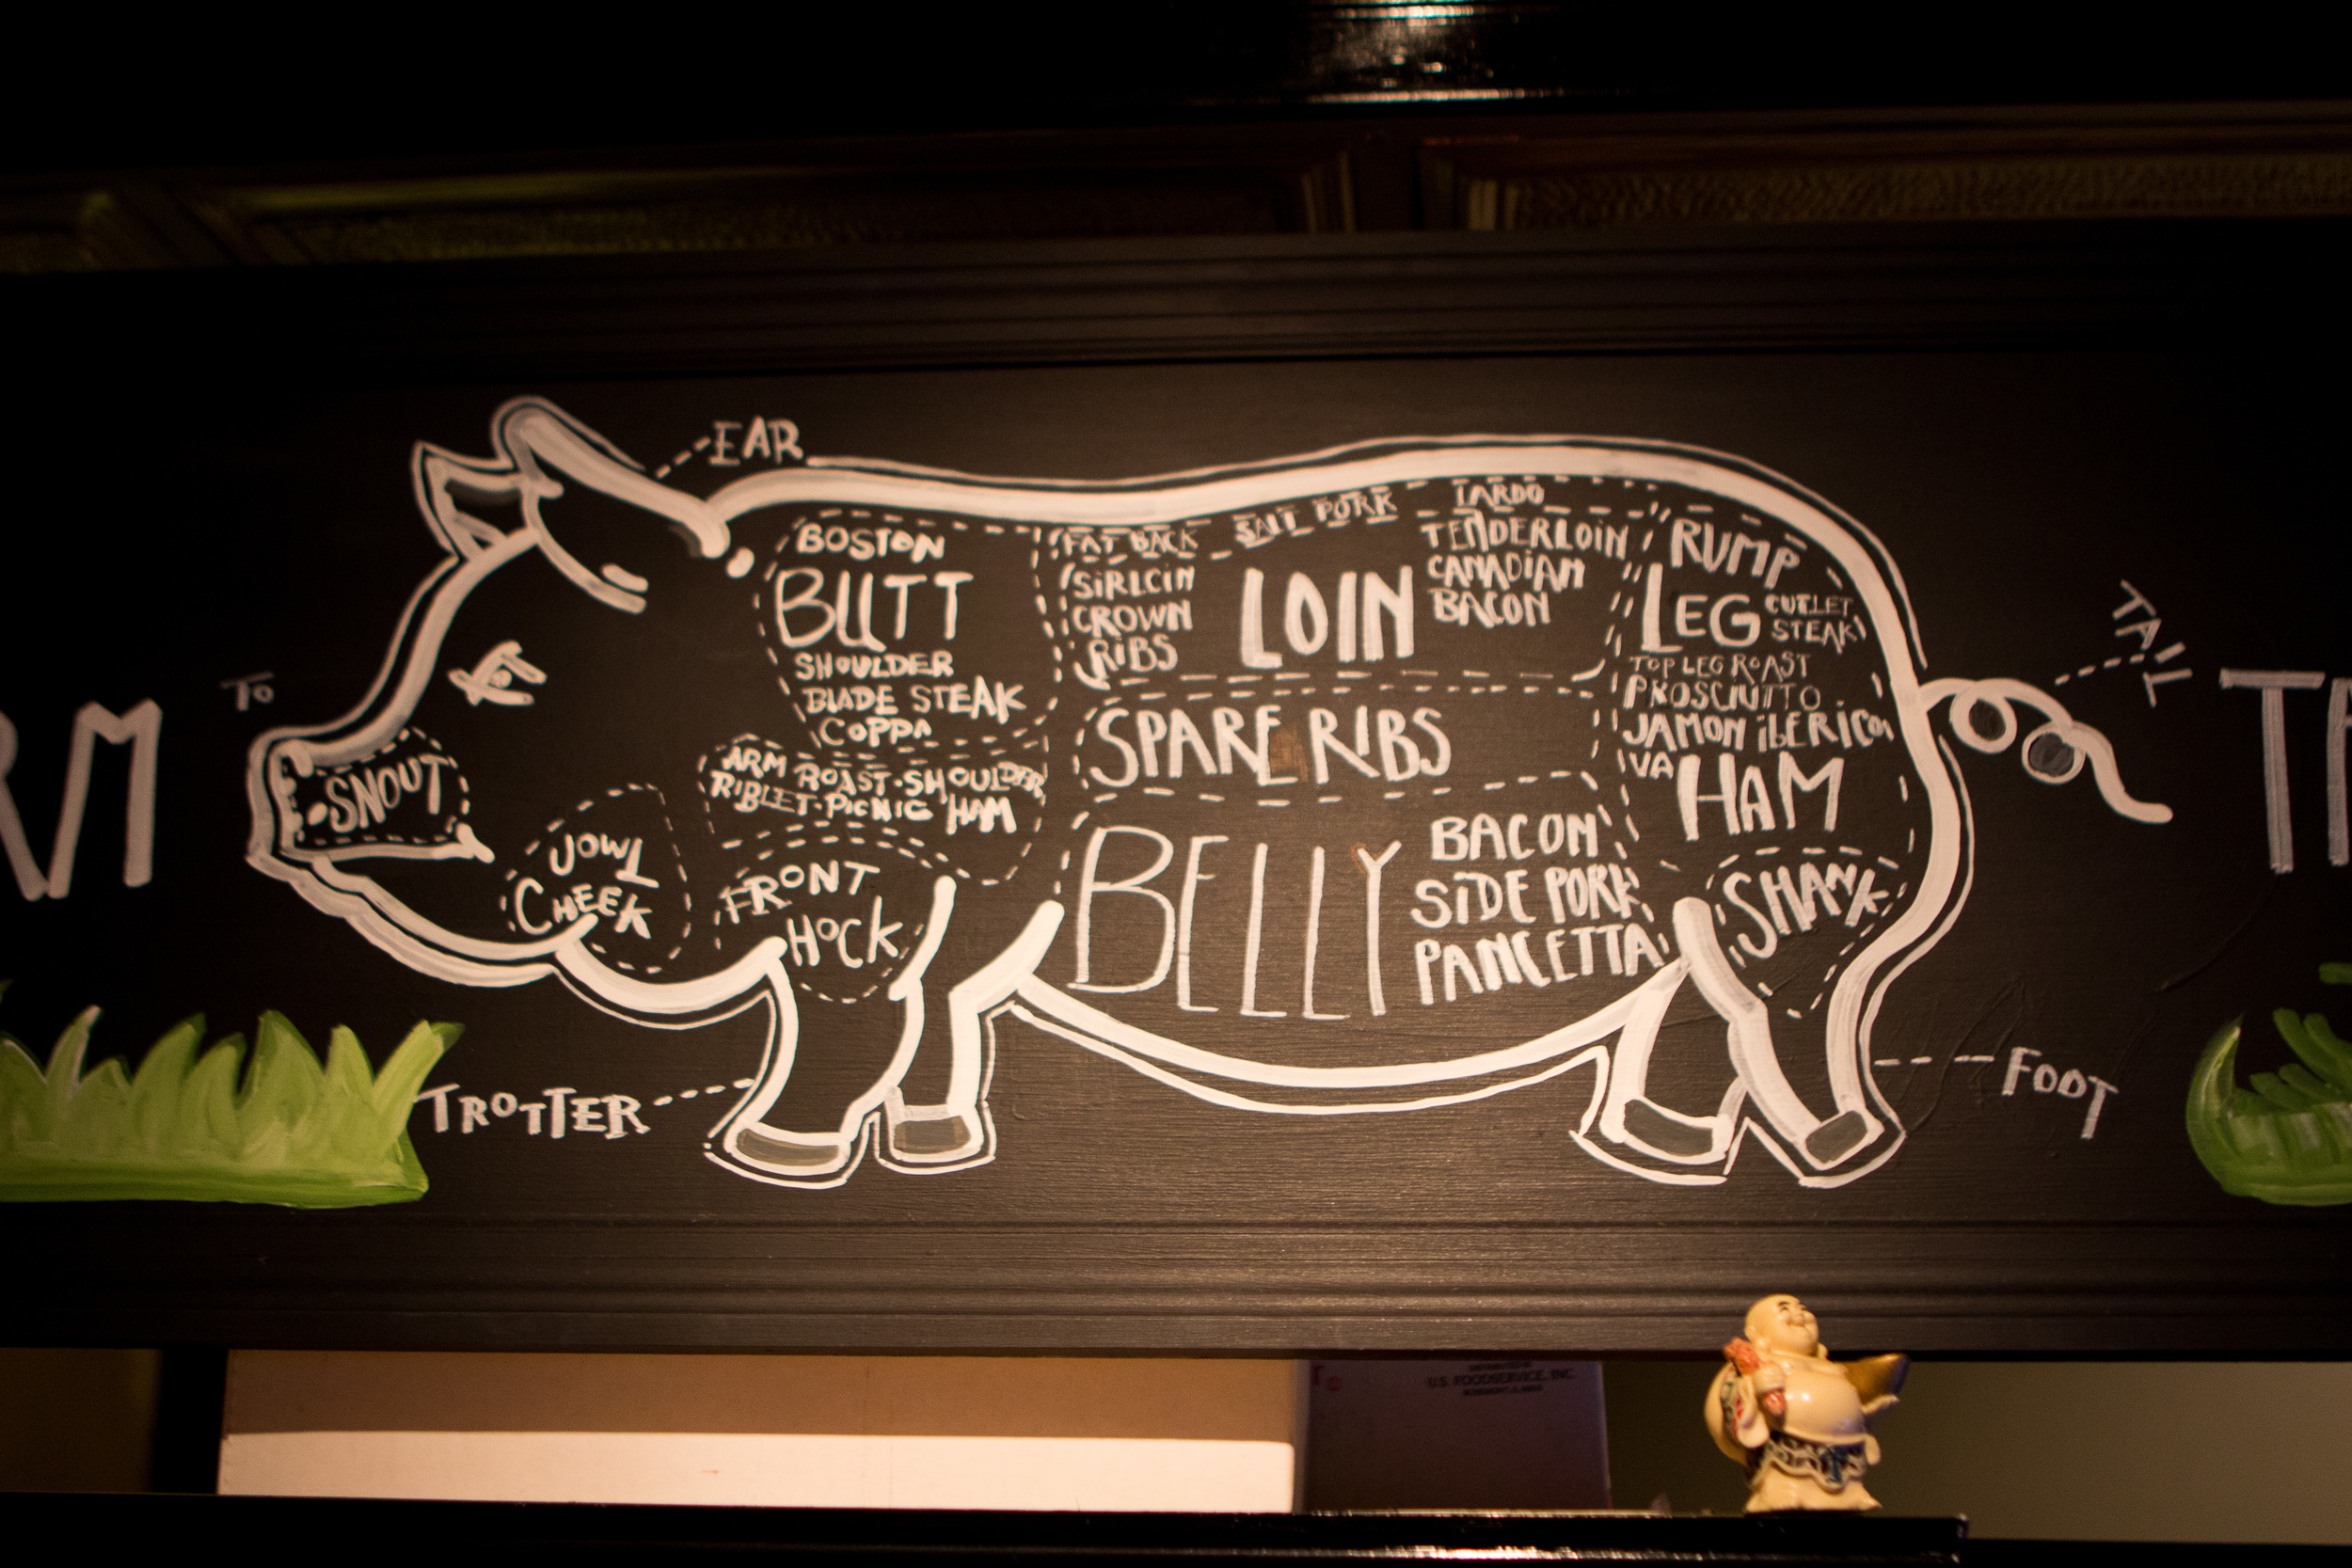 RM
TO
EAR
SNOUT
JOWL
CHEEK
BOSTON
BUTT
SHOULDER
BLADE STEAK
COPPA
ARM ROAST-SHOULDER
RIBLET-PICNIC HAM
FRONT
HOCK
TROTTER
FAT BACK
SALT PORK
LARDO
SIRLOIN
CROWN
RIBS
LOIN
TENDERLOIN
CANADIAN
BACON
SPARE RIBS
BELLY
BACON
SIDE PORK
PANCETTA
RUMP
LEG
CUTLET
STEAK
TOP LEG ROAST
PROSCIUTTO
JAMON IBERICO
VA HAM
SHANK
TAIL
FOOT
U.S. FOODSERVICE, INC.